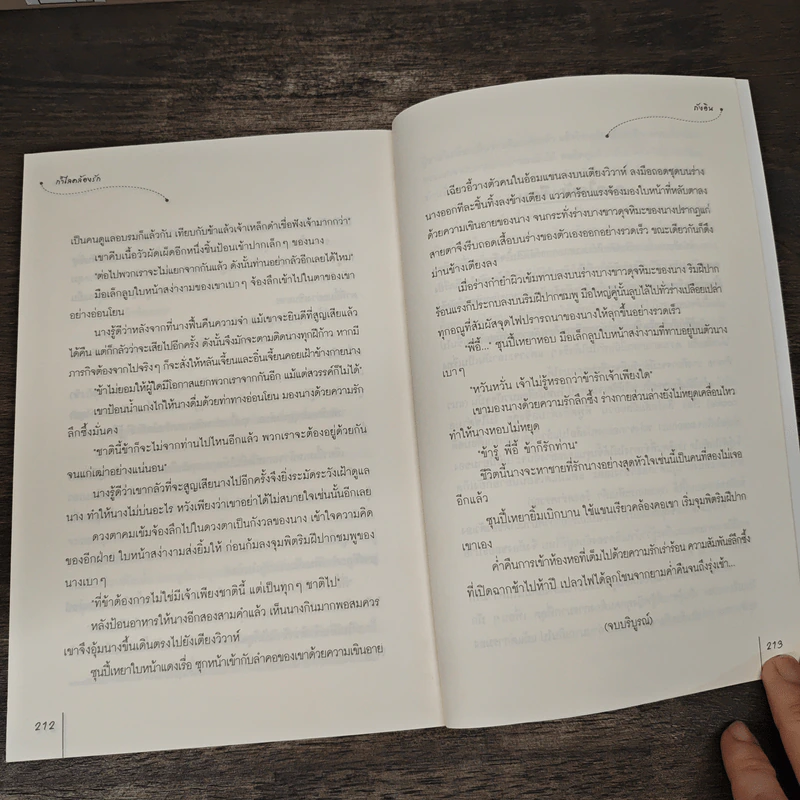 กำไลคล้องรัก
เป็นคนดูแลอบรมก็แล้วกัน เทียบกับข้าแล้วเจ้าเหล็กดำเชื่อฟังเจ้ามากกว่า"
เขาคีบเนื้อวัวผัดเผ็ดอีกหนึ่งชิ้นป้อนเข้าปากเล็กๆ ของนาง
"ต่อไปพวกเราจะไม่แยกจากกันแล้ว ดังนั้นท่านอย่ากลัวอีกเลยได้ไหม"
มือเล็กลูบใบหน้าสง่างามของเขาเบาๆ จ้องลึกเข้าไปในตาของเขา
อย่างอ่อนโยน
นางรู้ดีว่าหลังจากที่นางฟื้นคืนความจำ แม้เขาจะยินดีที่สูญเสียแล้ว
ได้คืน แต่ก็กลัวว่าจะเสียไปอีกครั้ง ดังนั้นจึงมักจะตามติดนางทุกฝีก้าว หากมี
ภารกิจต้องจากไปจริงๆ ก็จะสั่งให้หลันเจี้ยนและอิ่นเจี้ยนคอยเฝ้าข้างกายนาง
"ข้าไม่ยอมให้ผู้ใดมีโอกาสแยกพวกเราจากกันอีก แม้แต่สวรรค์ก็ไม่ได้"
เขาป้อนน้ำแกงไก่ให้นางดื่มด้วยท่าทางอ่อนโยน มองนางด้วยความรัก
ลึกซึ้งมั่นคง
"ชาตินี้ข้าก็จะไม่จากท่านไปไหนอีกแล้ว พวกเราจะต้องอยู่ด้วยกัน
จนแก่เฒ่าอย่างแน่นอน"
นางรู้ดีว่าเขากลัวที่จะสูญเสียนางไปอีกครั้งจึงยิ่งระมัดระวังเฝ้าดูแล
นาง ทำให้นางไม่บ่นอะไร หวังเพียงว่าเขาอย่าได้ไม่สบายใจเช่นนั้นอีกเลย
ดวงตาคมเข้มจ้องลึกไปในดวงตาเป็นกังวลของนาง เข้าใจความคิด
ของอีกฝ่าย ใบหน้าสง่างามส่งยิ้มให้ ก่อนก้มลงจุมพิตริมฝีปากชมพูของ
นางเบาๆ
"ที่ข้าต้องการไม่ใช่มีเจ้าเพียงชาตินี้ แต่เป็นทุกๆ ชาติไป"
หลังป้อนอาหารให้นางอีกสองสามคำแล้ว เห็นนางกินมากพอสมควร
เขาจึงอุ้มนางขึ้นเดินตรงไปยังเตียงวิวาห์
ซุนปี้เหยาใบหน้าแดงเรื่อ ซุกหน้าเข้ากับลำคอของเขาด้วยความเขินอาย
212
กังอิน
เฉียวอี้วางตัวคนในอ้อมแขนลงบนเตียงวิวาห์ ลงมือถอดชุดบนร่าง
นางออกทีละชิ้นทิ้งลงข้างเตียง แววตาร้อนแรงจ้องมองใบหน้าที่หลับตาลง
ด้วยความเขินอายของนาง จนกระทั่งร่างบางขาวดุจหิมะของนางปรากฏแก่
สายตาจึงรีบถอดเสื้อบนร่างของตัวเองออกอย่างรวดเร็ว ขณะเดียวกันก็ดึง
ม่านข้างเตียงลง
เมื่อร่างกำยำผิวเข้มทาบลงบนร่างบางขาวดุจหิมะของนาง ริมฝีปาก
ร้อนแรงก็ประกบลงบนริมฝีปากชมพู มือใหญ่คู่นั้นลูบไล้ไปทั่วร่างเปลือยเปล่า
ทุกอณูที่สัมผัสจุดไฟปรารถนาของนางให้ลุกขึ้นอย่างรวดเร็ว
"พี่อี้..." ซุนปี้เหยาหอบ มือเล็กลูบใบหน้าสง่างามที่ทาบอยู่บนตัวนาง
เบาๆ
"หวันหวัน เจ้าไม่รู้หรอกว่าข้ารักเจ้าเพียงใด"
เขามองนางด้วยความรักลึกซึ้ง ร่างกายส่วนล่างยังไม่หยุดเคลื่อนไหว
ทำให้นางหอบไม่หยุด
"ข้ารู้ พี่อี้ ข้าก็รักท่าน"
ชีวิตนี้นางจะหาชายที่รักนางอย่างสุดหัวใจเช่นนี้เป็นคนที่สองไม่เจอ
อีกแล้ว
ซุนปี้เหยายิ้มเบิกบาน ใช้แขนเรียวคล้องคอเขา เริ่มจุมพิตริมฝีปาก
เขาเอง
ค่ำคืนการเข้าห้องหอที่เต็มไปด้วยความรักเร่าร้อน ความสัมพันธ์ลึกซึ้ง
ที่เปิดฉากช้าไปห้าปี เปลวไฟได้ลุกโชนจากยามค่ำคืนจนถึงรุ่งเช้า...
(จบบริบูรณ์)
213